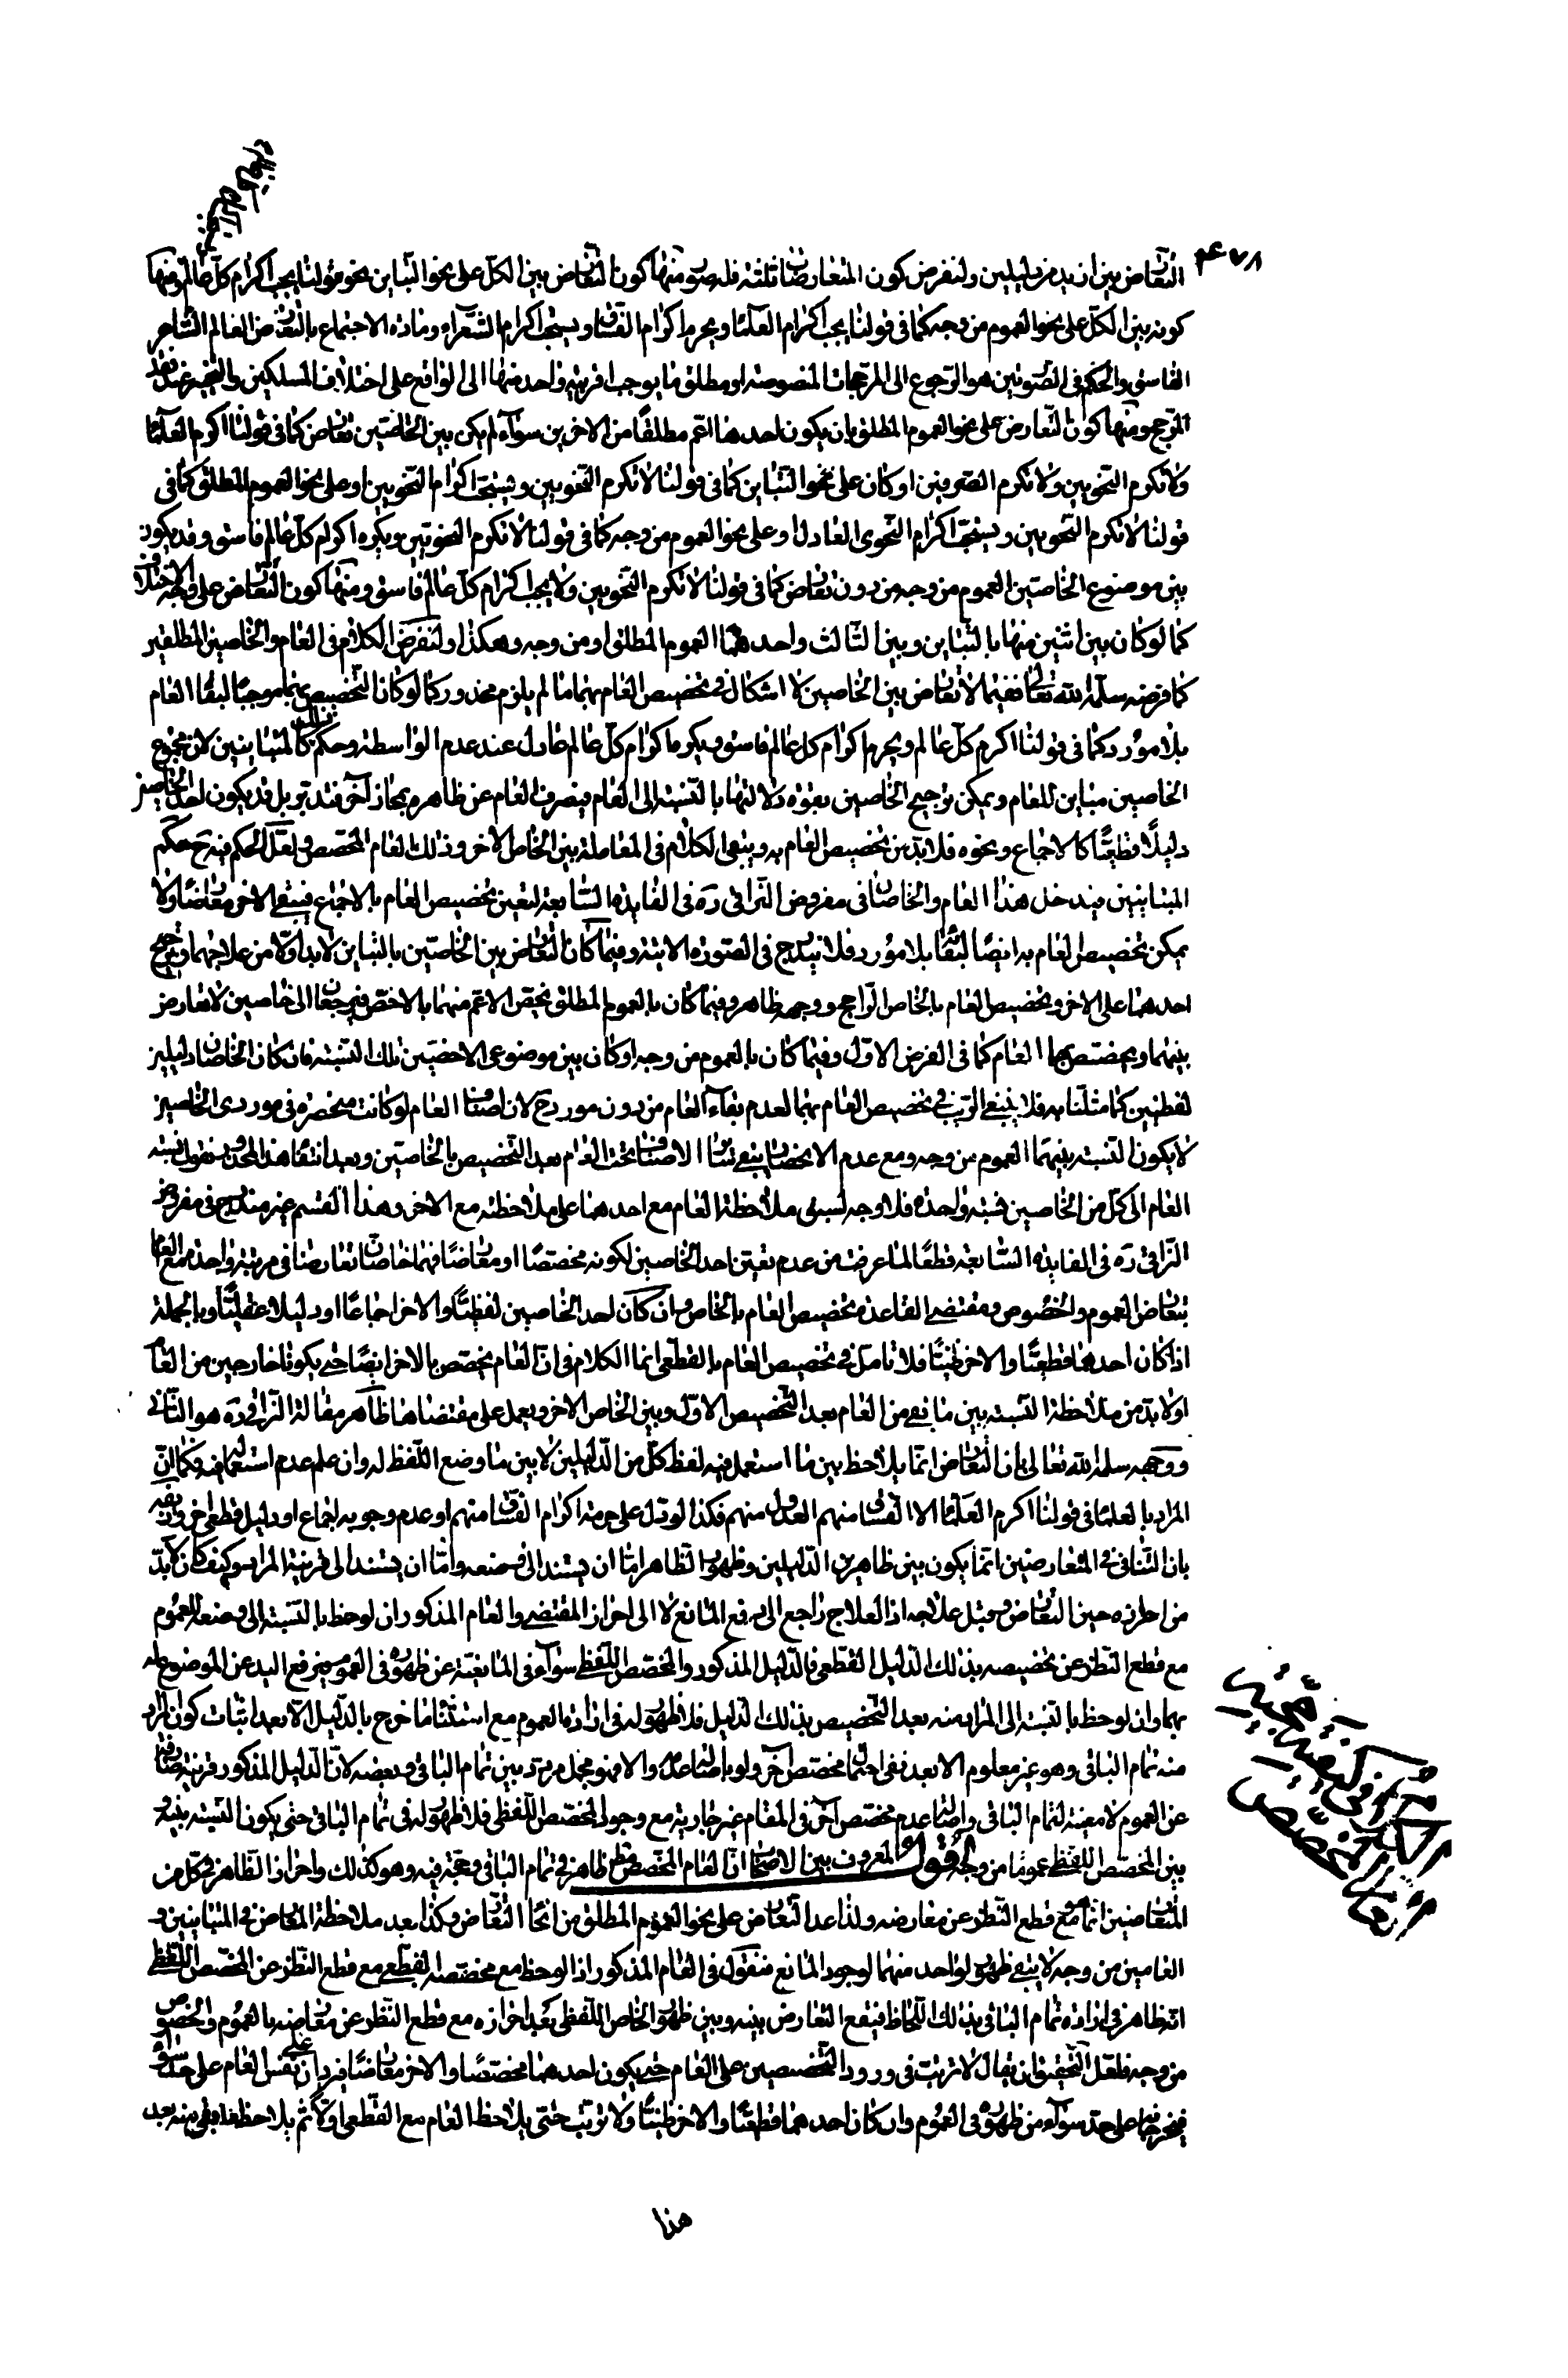 ٤٧٨
التعارض بين ازيد من دليلين ولنفرض كون المتعارضات ثلثة فله صور منها كون التعارض بين الكل على نحو التباين نحو قولنا يجب اكرام كل عالم ومنها
كونه بين الكل على نحو العموم من وجه كما فى قولنا يجب اكرام العلماء ويحرم اكرام الفساق ويستحب اكرام الشعراء ومادة الاجتماع بالتعارض العالم الشاعر
الفاسق والحكم فى الصورتين هو الرجوع الى المرجحات المنصوصة او مطلق ما يوجب اقربية واحد منها الى الواقع على اختلاف المسلكين والتخيير عند فقد
المرجح ومنها كون التعارض على نحو العموم المطلق بان يكون احدها اعم مطلقا من الاخرين سواء لم يكن بين الخاصين تعارض كما فى قولنا اكرم العلماء
ولا تكرم النحويين ولا تكرم الصرفيين او كان على نحو التباين كما فى قولنا لا تكرم النحويين ويستحب اكرام النحويين او على نحو العموم المطلق كما فى
قولنا لا تكرم النحويين ويستحب اكرام النحوى العادل او على نحو العموم من وجه كما فى قولنا لا تكرم النحويين ويكره اكرام كل عالم فاسق وقد يكون
بين موضوع الخاصين العموم من وجه من دون تعارض كما فى قولنا لا تكرم النحويين ولا يجب اكرام كل عالم فاسق ومنها كون التعارض على وجه الاختلاف
كما لو كان بين اثنين منها بالتباين وبين الثالث واحدهما العموم المطلق او من وجه وهكذا ولنفرض الكلام فى العام والخاصين المطلقين
كما فرضه سلمه الله تعالى ففيما لا تعارض بين الخاصين لا اشكال فى تخصيص العام بهما ما لم يلزم محذور كما لو كان التخصيص بهما موجبا لبقاء العام
بلا مورد كما فى قولنا اكرم كل عالم ويحرم اكرام كل عالم فاسق ويكره اكرام كل عالم عادل عند عدم الواسطة وحكم ذلك كالمتباينين لان مجموع
الخاصين مباين للعام ويمكن ترجيح الخاصين بقوة دلالتها بالنسبة الى العام فيصرف العام عن ظاهره بمجاز اخر فتدبر بل قد يكون احد الخاصين
دليلا قطعيا كالاجماع ونحوه فلا بد من تخصيص العام به ويبقى الكلام فى المعاملة بين الخاص الاخر وذلك العام المخصص ولعل الحكم فيه ح حكم
المتباينين فيدخل هذا العام والخاصان فى مفروض النراقى ره فى الفائدة السابعة لتعين تخصيص العام بالاجماع فيبقى الاخر معارضا ولا
يمكن تخصيص العام به ايضا لبقائه بلا مورد فلا يندرج فى الصورة الاتية وفيما كان التعارض بين الخاصين بالتباين لا بد اولا من علاجهما وترجيح
احدهما على الاخر وتخصيص العام بالخاص الراجح ووجهه ظاهر وفيما كان بالعموم المطلق يخص الاعم منهما بالاخص فيرجعان الى خاصين لا تعارض
بينهما ويخصص بهما العام كما فى الفرض الاول وفيما كان بالعموم من وجه او كان بين موضوعى الاخصين تلك النسبة فان كان الخاصان دليلين
لفظيين كما مثلنا به فلا ينبغى الريب فى تخصيص العام بهما لعدم بقاء العام من دون مورد ح لان اصناف العام لو كانت منحصرة فى موردى الخاصين
لا يكون النسبة بينهما العموم من وجه ومع عدم الانحصار يبقى سائر الاصناف تحت العام بعد التخصيص بالخاصين وبعد انتفاء هذا المحذور فنقول نسبة
العام الى كل من الخاصين نسبة واحدة فلا وجه لسبق ملاحظة العام مع احدهما على ملاحظته مع الاخر وهذا القسم غير مندرج فى مفروض
النراقى ره فى الفائدة السابعة قطعا لما عرفت من عدم تعين احد الخاصين لكونه مخصصا او معارضا فهما خاصان تعارضا فى مرتبة واحدة مع العام
بتعارض العموم والخصوص ومقتضى القاعدة تخصيص العام بالخاص وان كان احد الخاصين لفظيا والاخر اجماعا او دليلا عقليا وبالجملة
اذا كان احدهما قطعيا والاخر ظنيا فلا تامل فى تخصيص العام بالقطعى انما الكلام فى ان العام يخصص بالاخر ايضا حتى يكونا خارجين من العام
اولا بد من ملاحظة النسبة بين ما بقى من العام بعد التخصيص الاول وبين الخاص الاخر ويعمل على مقتضاها ظاهر مقالة النراقى ره هو الثانى
ووجهه سلمه الله تعالى بان التعارض انما يلاحظ بين ما استعمل فيه لفظ كل من الدليلين لا بين ما وضع اللفظ له وان علم عدم استعماله فيه وكما ان
المراد بالعلماء فى قولنا اكرم العلماء الا الفساق منهم العدول منهم فكذا لو دل على حرمة اكرام الفساق منهم او عدم وجوبه اجماع او دليل قطعى اخر ورده
بان التنافى فى المتعارضين انما يكون بين ظاهرى الدليلين وظهور الظاهر اما ان يستند الى وضعه واما ان يستند الى قرينة المراد وكيف كان لا بد
من احرازه حين التعارض وقبل علاجه اذ العلاج راجع الى رفع المانع لا الى احراز المقتضى والعام المذكور ان لوحظ بالنسبة الى وضعه للعموم
مع قطع النظر عن تخصيصه بذلك الدليل القطعى فالدليل المذكور والمخصص اللفظى سواء فى المانعية عن ظهوره فى العموم فيرفع اليد عن الموضوع له
بهما وان لوحظ بالنسبة الى المراد منه بعد التخصيص بذلك الدليل فلا ظهور له فى ارادة العموم مع استثناء ما خرج بالدليل الا بعد اثبات كون المراد
منه تمام الباقى وهو غير معلوم الا بعد نفى احتمال مخصص اخر ولو باصالة عدمه والا فهو مجمل مردد بين تمام الباقى وبعضه لان الدليل المذكور قرينة صارفة
عن العموم لا معينة لتمام الباقى واصالة عدم مخصص اخر فى المقام غير جارية مع وجود المخصص اللفظى فلا ظهور له فى تمام الباقى حتى يكون النسبة بينه و
بين المخصص اللفظى عموما من وجه اقول المعروف بين الاصحاب ان العام المخصص ظاهر فى تمام الباقى وحجة فيه وهو كذلك واحراز الظاهر فى كل من
المتعارضين انما هو مع قطع النظر عن معارضه ولذا عد التعارض على نحو العموم المطلق من انحاء التعارض وكذا بعد ملاحظة التعارض فى المتباينين و
العامين من وجه لا يبقى ظهور لواحد منهما لوجود المانع فنقول فى العام المذكور اذا لوحظ مع مخصصه القطعى مع قطع النظر عن المخصص اللفظى
انه ظاهر فى ارادة تمام الباقى بذلك اللحاظ فيقع التعارض بينه وبين ظهور الخاص اللفظى بعد احرازه مع قطع النظر عن معارضه بالعموم والخصوص
من وجه فلعل التحقيق ان يقال لا ترتب فى ورود التخصيصين على العام حتى يكون احدهما مخصصا والاخر معارضا فيردان على نفس العام على حد سواء
فيخرجانه على حد سواء من ظهوره فى العموم وان كان احدهما قطعيا والاخر ظنيا ولا ترتب حتى يلاحظ العام مع القطعى اولا ثم يلاحظ ما بقى منه بعد
هذا